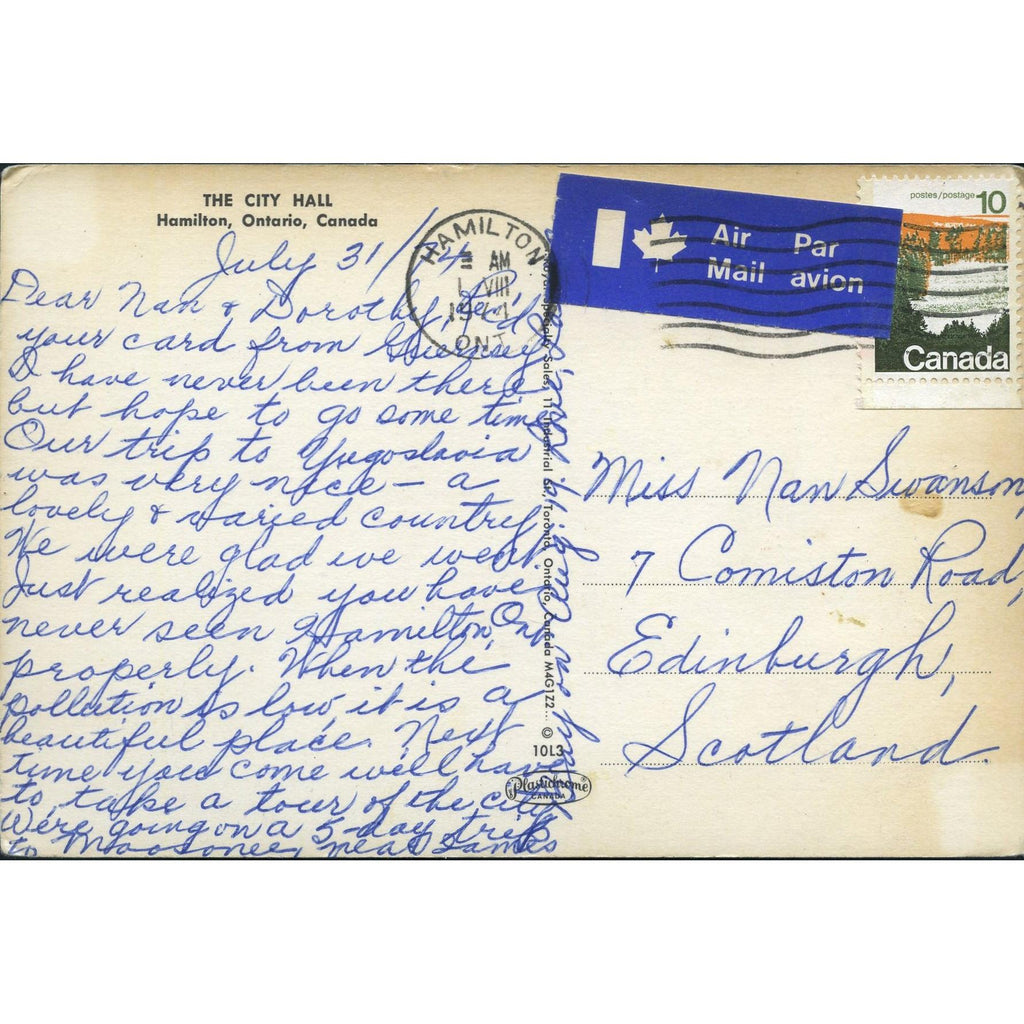 THE CITY HALL
Hamilton, Ontario, Canada
July 31/74
Dear Nan & Dorothy, Rec'd
your card from Guernsey
I have never been there
but hope to go some time
Our trip to Yugoslavia
was very nice — a
lovely & varied country
We were glad we went.
Just realized you have
never seen Hamilton, Ont
properly. When the
pollution is low it is a
beautiful place. Next
time you come will have
to take a tour of the city
We're going on a 5-day trip
to Moosonee, near James
Sales, 11 Industrial St., Toronto, Ontario, Canada M4G1Z2... ©
10L3
Plastichrome
CANADA
HAMILTON
AM
VIII
ONT
Air Mail
Par avion
postes/postage 10
Canada
Miss Nan Swanson,
7 Comiston Road,
Edinburgh,
Scotland.